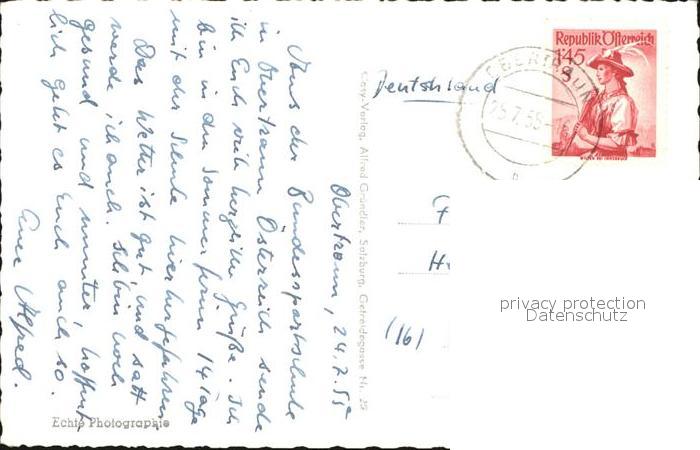 Obertraun, 24.7.55
Aus der Bundessportschule
in Obertraun Österreich sende
ich Euch viele herzliche Grüße. Ich
bin in den Sommerferien 14 Tage
mit der Schule hierhergefahren.
Das Wetter ist gut und satt
werde ich auch. Ich bin noch
gesund und munter, hoffent
lich geht es Euch auch so.
Euer Alfred.
Echte Photographie
Cosy-Verlag, Alfred Gründler, Salzburg, Getreidegasse Nr. 25
Deutschland
Republik Österreich
1'45
S
25.7.55
F
H
(16)
privacy protection
Datenschutz